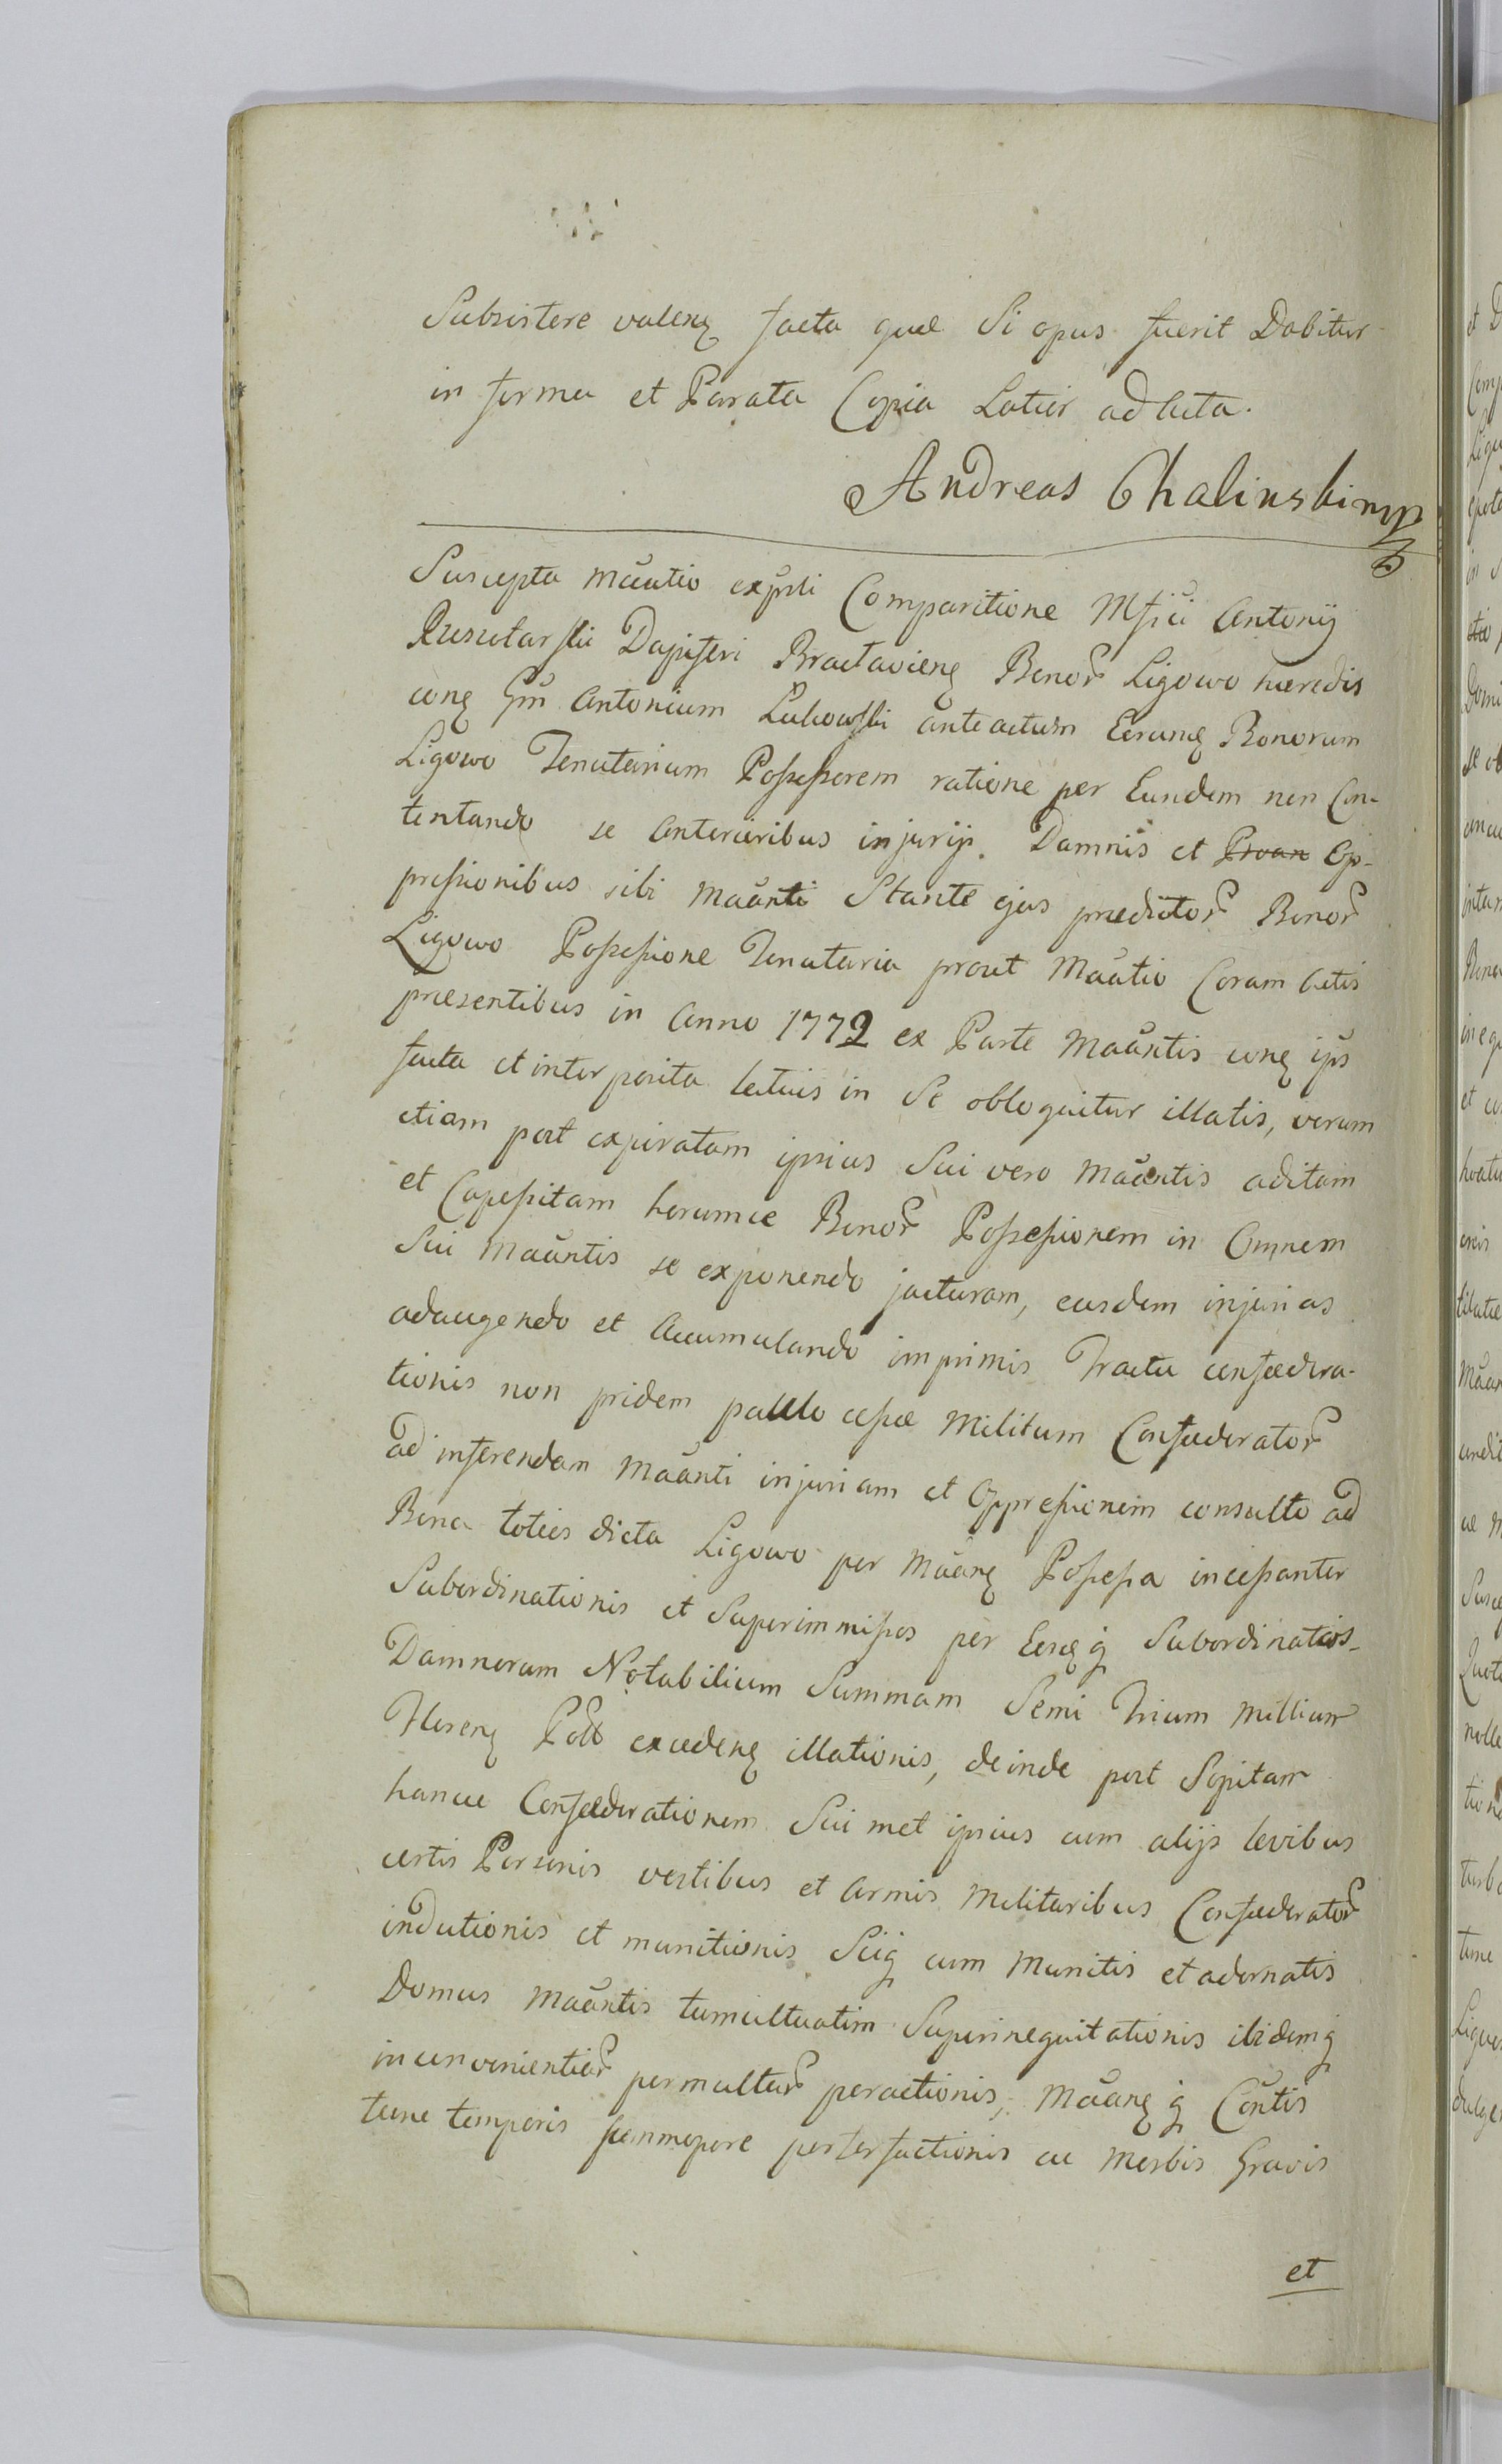 Subsistere valenꝫ facta quæ Si opus fuerit Dabitur
in forma et Parata Copia Latior ad Acta.
Andreas Chalinski mp
Suscepta mãatio expsli Comparitione Mfici Antonij
Dapiferi Bractavienꝫ Bonor Ligowo hæredis
conꝫ Gm Antonium Lukowski anteactum Eorunꝫ Bonorum
Ligowo Tenutarium Possessorem ratione per Eundem non Con-
tentando se Anterioribus injurijs Damnis et Op-
pressionibus sibi mãanti Stante ejus prædictor Bonor
Ligowo Possessione Tenutaria prout Mãatio Coram Actis
præsentibus in Anno 1772 ex Parte Mãantis conꝫ ips
facta et interposita latius in Se obloquitur illatis, verum
etiam post expiratam ipsius Sui vero Mãantis aditam
et Capessitam horumce Bonor Possessionem in Omnem
Sui Mãantis se exponendo jacturam, easdem injurias
adaugendo et Accumulando imprimis Tractu confœdera-
tionis non pridem paulo cessæ Militum Confœderator
ad inferendam Mãanti injuriam et Oppressionem consulto ad
Bona toties dicta Ligowo per Mãanꝫ Possessa incessanter
Subordinationis et Superimmissos per Eosꝫ q Subordinatos
Damnorum Notabilium Summam Semi Trium Millium
Florenꝫ Poll excedenꝫ illationis, deinde post Sopitam
hancce Confœderationem Sui met ipsius cum alijs levibus
certis Personis vestibus et Armis Militaribus Confœderator
indutionis et munitionis Sicq cum Munitis et adornatis
Domus Mãantis tumultuatim Superinequitationis ibidemq
inconvenientiar permultar peractionis, Mãanꝫ q Contis
tunc temporis summopere perterfactionis ac Morbis Gravis
et